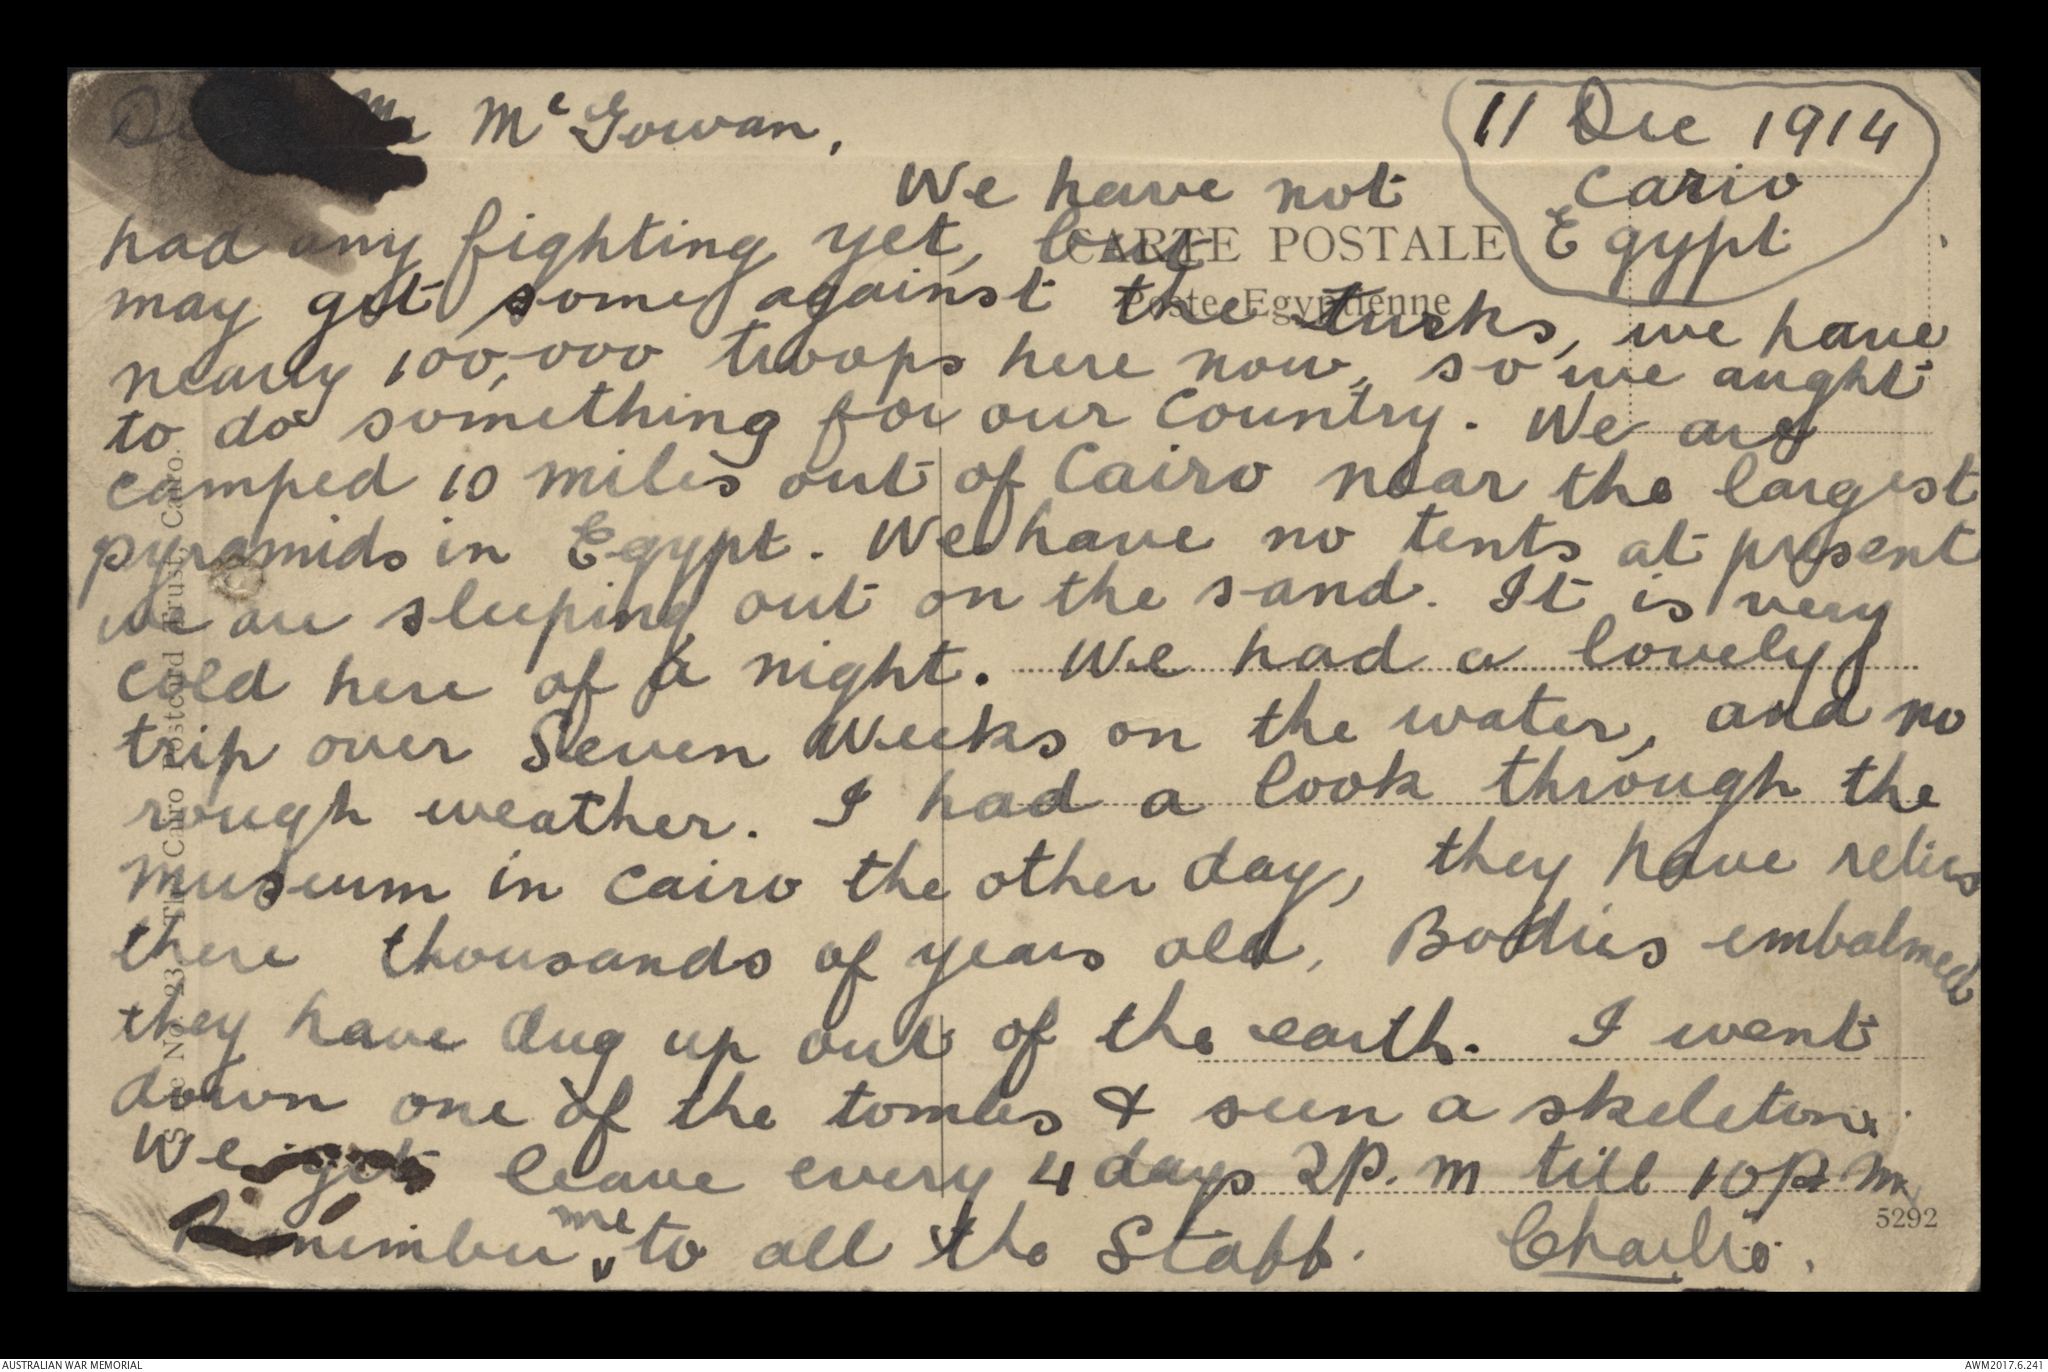 Mr McGowan,
11 Dec 1914
Cario
Egypt
We have not
had any fighting yet, but
may get some against the Turks, we have
nearly 100,000 troops here now, so we aught
to do something for our Country. We are
camped 10 miles out of Cairo near the largest
pyramids in Egypt. We have no tents at present
we are sleeping out on the sand. It is very
cold here of a night. We had a lovely
trip over Seven Weeks on the water, and no
rough weather. I had a look through the
Museum in Cairo the other day, they have relics
there thousands of years old, Bodies embalmed
they have dug up out of the earth. I went
down one of the tombs & seen a skeleton.
We get leave every 4 days 2P.m till 10P.m
Remember me to all the Staff. Charlie.
CARTE POSTALE
Poste Egyptienne
The Cairo Postcard Trust, Cairo.
5292
AUSTRALIAN WAR MEMORIAL
AWM2017.6.241